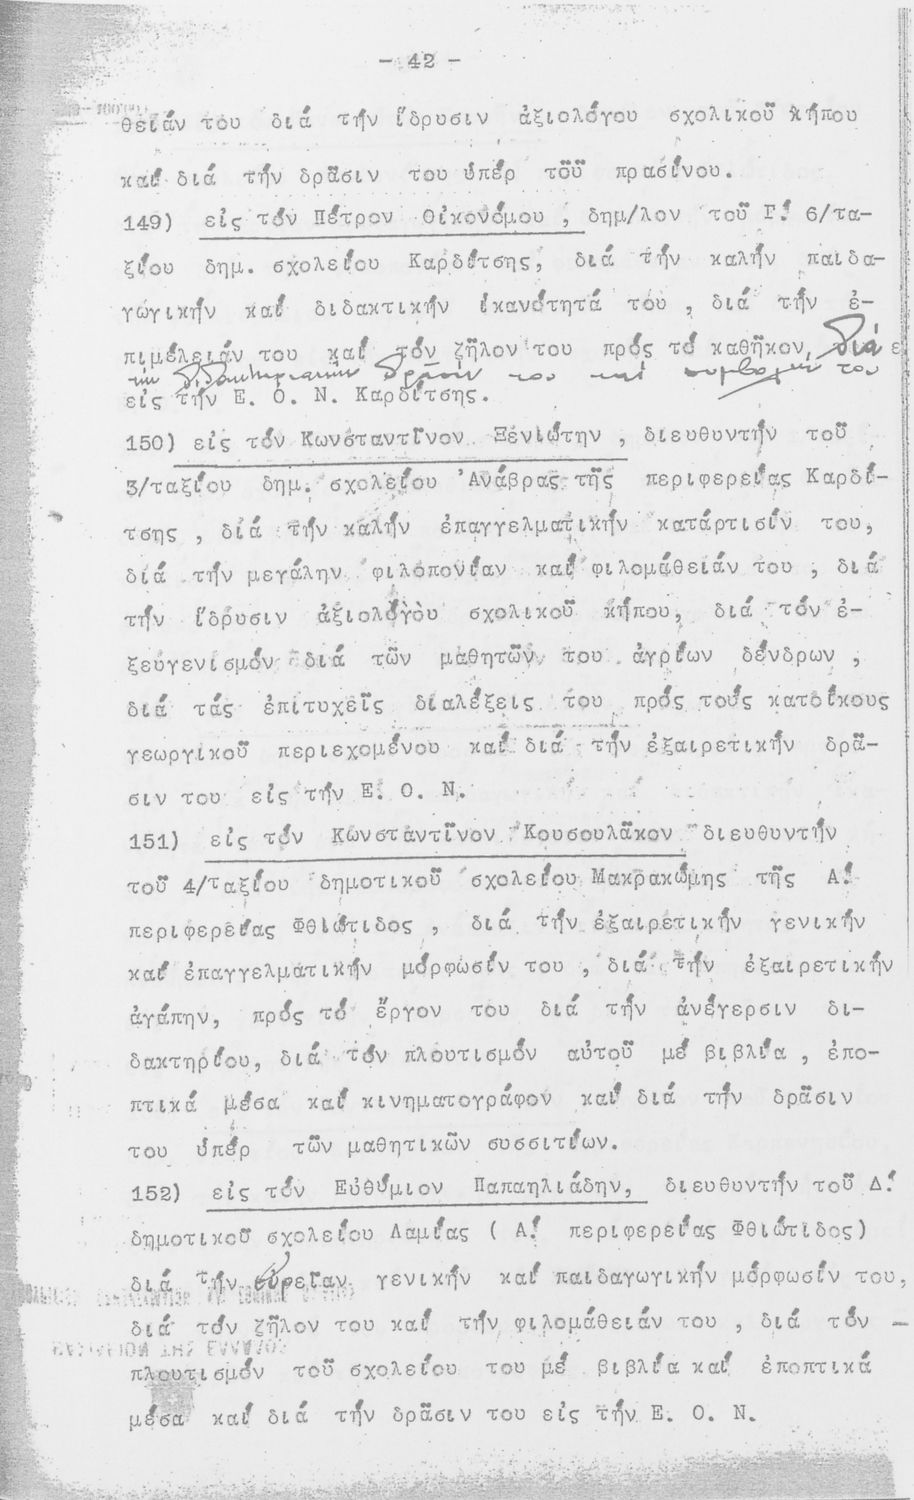 - 42 -
θειάν του διά τήν ἵδρυσιν ἀξιολόγου σχολικοῦ κήπου
καί διά τήν δρᾶσιν του ὑπέρ τοῦ πρασίνου.
149) εἰς τόν Πέτρον Οἰκονόμου , δημ/λον τοῦ Γ! 6/τα-
ξίου δημ. σχολείου Καρδίτσης, διά τήν καλήν παιδα-
γωγικήν καί διδακτικήν ἱκανότητά του , διά τήν ἐ-
πιμέλειάν του καί τόν ζῆλον του πρός τό καθῆκον, διά
τήν δρᾶσιν του καί συμβολήν του
εἰς τήν Ε. Ο. Ν. Καρδίτσης.
150) εἰς τόν Κωνσταντῖνον Ξενιώτην , διευθυντήν τοῦ
3/ταξίου δημ. σχολείου Ἀνάβρας τῆς περιφερείας Καρδί-
τσης , διά τήν καλήν ἐπαγγελματικήν κατάρτισίν του,
διά τήν μεγάλην φιλοπονίαν καί φιλομάθειάν του , διά
τήν ἵδρυσιν ἀξιολόγου σχολικοῦ κήπου, διά τόν ἐ-
ξευγενισμόν διά τῶν μαθητῶν του ἀγρίων δένδρων ,
διά τάς ἐπιτυχεῖς διαλέξεις του πρός τούς κατοίκους
γεωργικοῦ περιεχομένου καί διά τήν ἐξαιρετικήν δρᾶ-
σιν του εἰς τήν Ε. Ο. Ν.
151) εἰς τόν Κωνσταντῖνον Κουσουλᾶκον διευθυντήν
τοῦ 4/ταξίου δημοτικοῦ σχολείου Μακρακώμης τῆς Α!
περιφερείας Φθιώτιδος , διά τήν ἐξαιρετικήν γενικήν
καί ἐπαγγελματικήν μόρφωσίν του , διά τήν ἐξαιρετικήν
ἀγάπην, πρός τό ἔργον του διά τήν ἀνέγερσιν δι-
δακτηρίου, διά τόν πλουτισμόν αὐτοῦ μέ βιβλία , ἐπο-
πτικά μέσα καί κινηματογράφον καί διά τήν δρᾶσιν
του ὑπέρ τῶν μαθητικῶν συσσιτίων.
152) εἰς τόν Εὐθύμιον Παπαηλιάδην, διευθυντήν τοῦ Δ!
δημοτικοῦ σχολείου Λαμίας ( Α! περιφερείας Φθιώτιδος)
διά τήν εὐρεῖαν γενικήν καί παιδαγωγικήν μόρφωσίν του,
διά τόν ζῆλον του καί τήν φιλομάθειάν του , διά τόν -
πλουτισμόν τοῦ σχολείου του μέ βιβλία καί ἐποπτικά
μέσα καί διά τήν δρᾶσιν του εἰς τήν Ε. Ο. Ν.